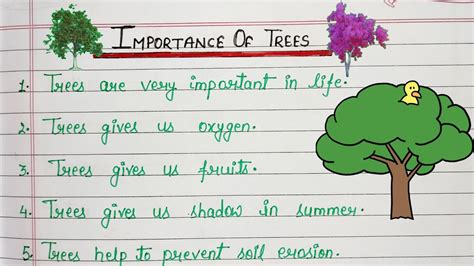 IMPORTANCE OF TREES
1. Trees are very important in life.
2. Trees gives us oxygen.
3. Trees gives us fruits.
4. Trees gives us shadow in summer.
5. Trees help to prevent soil erosion.